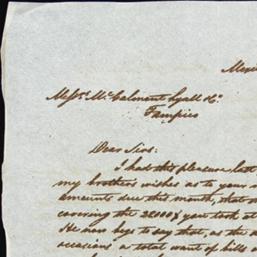 Mexi
Messrs. McCalmont Lyall & Co.
Tampico
Dear Sirs:
I had this pleasure last
my brothers wishes as to your
amounts due this month, that
covering the 22000$ you took at
He now begs to say that, as the
occasions a total want of bills